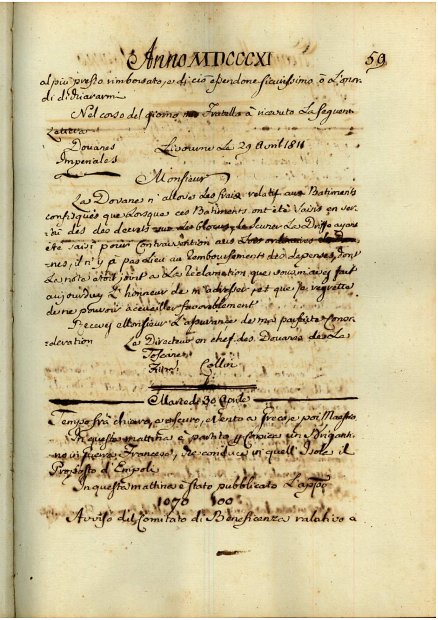 Anno MDCCCXI
59
al più presto rimborsato, e di ciò essendone sicurissimo ò L'onor-
di di
Nel corso del giorno, mio Fratello à ricevuto La Seguent
Lettera
Douanes
Imperiales
Livourne Le 29 Avril 1811
Monsieur
La Dovanes n'alloves des frais relatif aux Batiments
confisqués que Lorsque ces Batiments ont été Saisis en ver-
tu des des decrets sur des blocus, de Seurer La Drisse ayant
été saisi pour Contravention aux Loix ordinaires de Doua-
nes, il n'y à pas Lieu au remboursements des depenses, dont
La note etoit joint a La Reclamation que vous m'avez fait
aujourduy L'honneur de m'adresser, et que je regrette
de ne pouvoir acceuiller favorablement
Recevez Monsieur L'assurance de ma parfaite Consi-
deration
Le Directeur en chef des Douanes de La
Toscane
Collin
Martedì 30 Aprile
Tempo frà chiaro, e oscuro, e Vento a Greco, e poi Maestro
In questa mattina è partito p Corsica un Brigant-
ino in fuera, Francese, che conduce in quell'Isola il
Proposto d'Empoli
In questa mattina è stato pubblicato L'app̃o
1070 100
Avviso del Comitato di Beneficenza relativo a